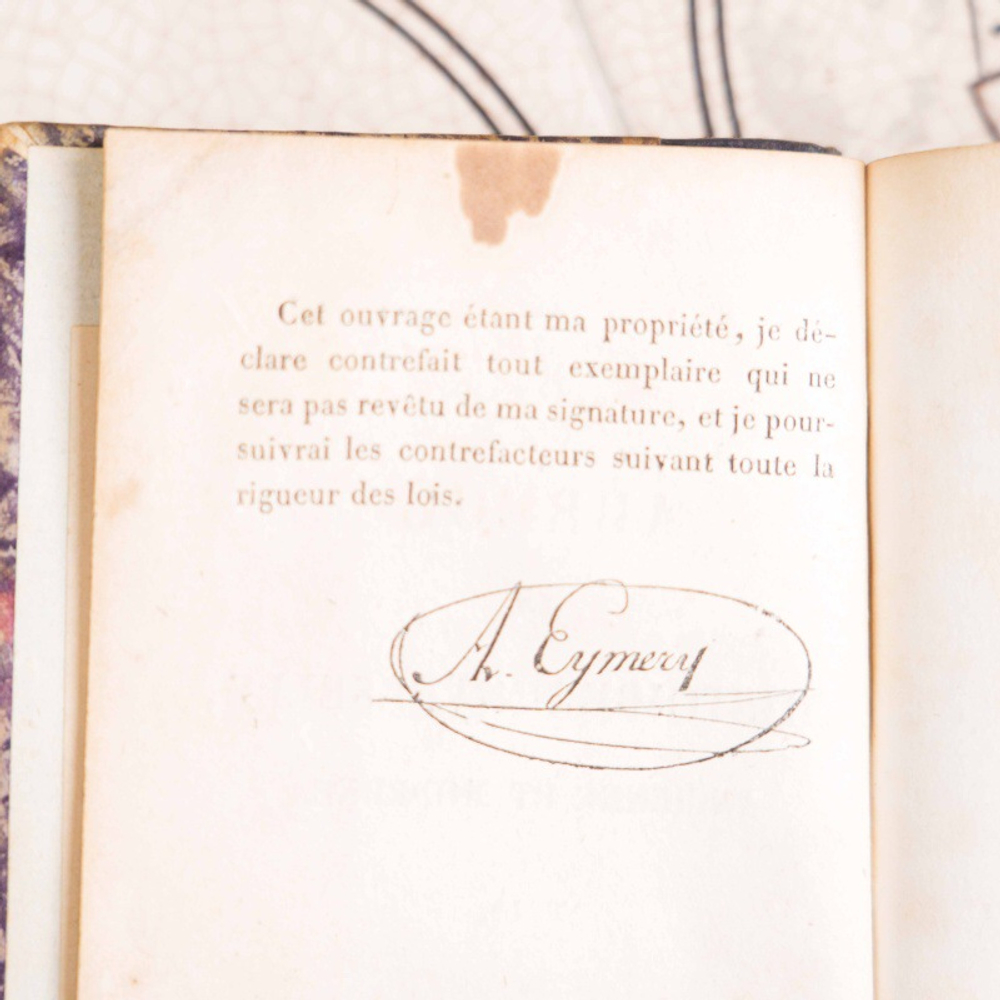 Cet ouvrage étant ma propriété, je dé-
clare contrefait tout exemplaire qui ne
sera pas revêtu de ma signature, et je pour-
suivrai les contrefacteurs suivant toute la
rigueur des lois.
A. Eymery